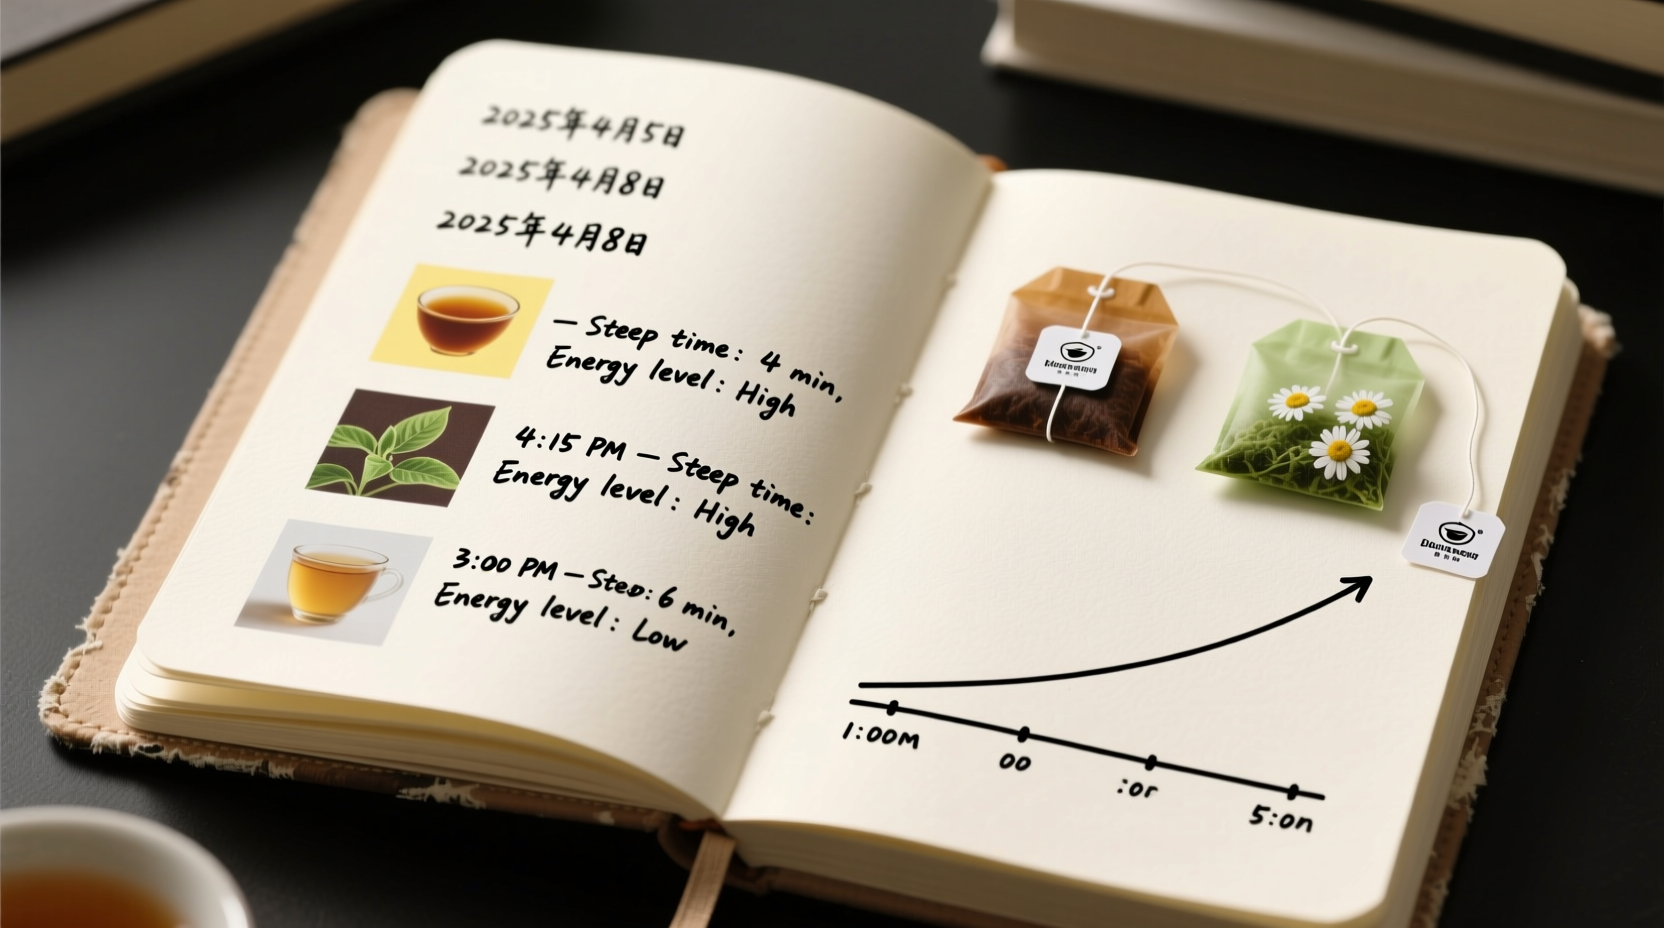 2025年4月5日
2025年4月8日
2025年4月8日
— Steep time: 4 min,
Energy level: High
4:15 PM — Steep time:
Energy level: High
3:00 PM — Step: 6 min,
Energy level: Low
1:00M
00
:or
5:on